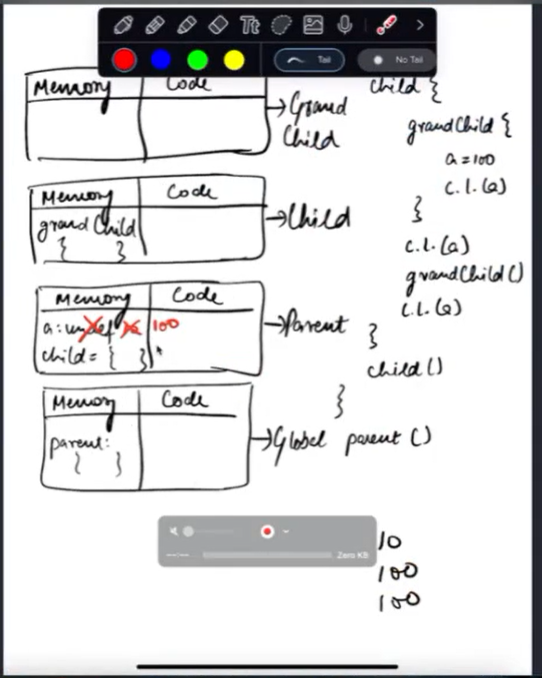 Tt
Tail
No Tail
Memory Code
→ Grand
Child
Memory Code
grandChild
{ }
→ Child
Memory Code
a: undef 10 100
child = { }
→ Parent
Memory Code
parent:
{ }
→ Global
child {
grandChild {
a = 100
c.l.(a)
}
c.l.(a)
grandChild()
c.l.(a)
}
child()
}
parent()
--:--
Zero KB
10
100
100